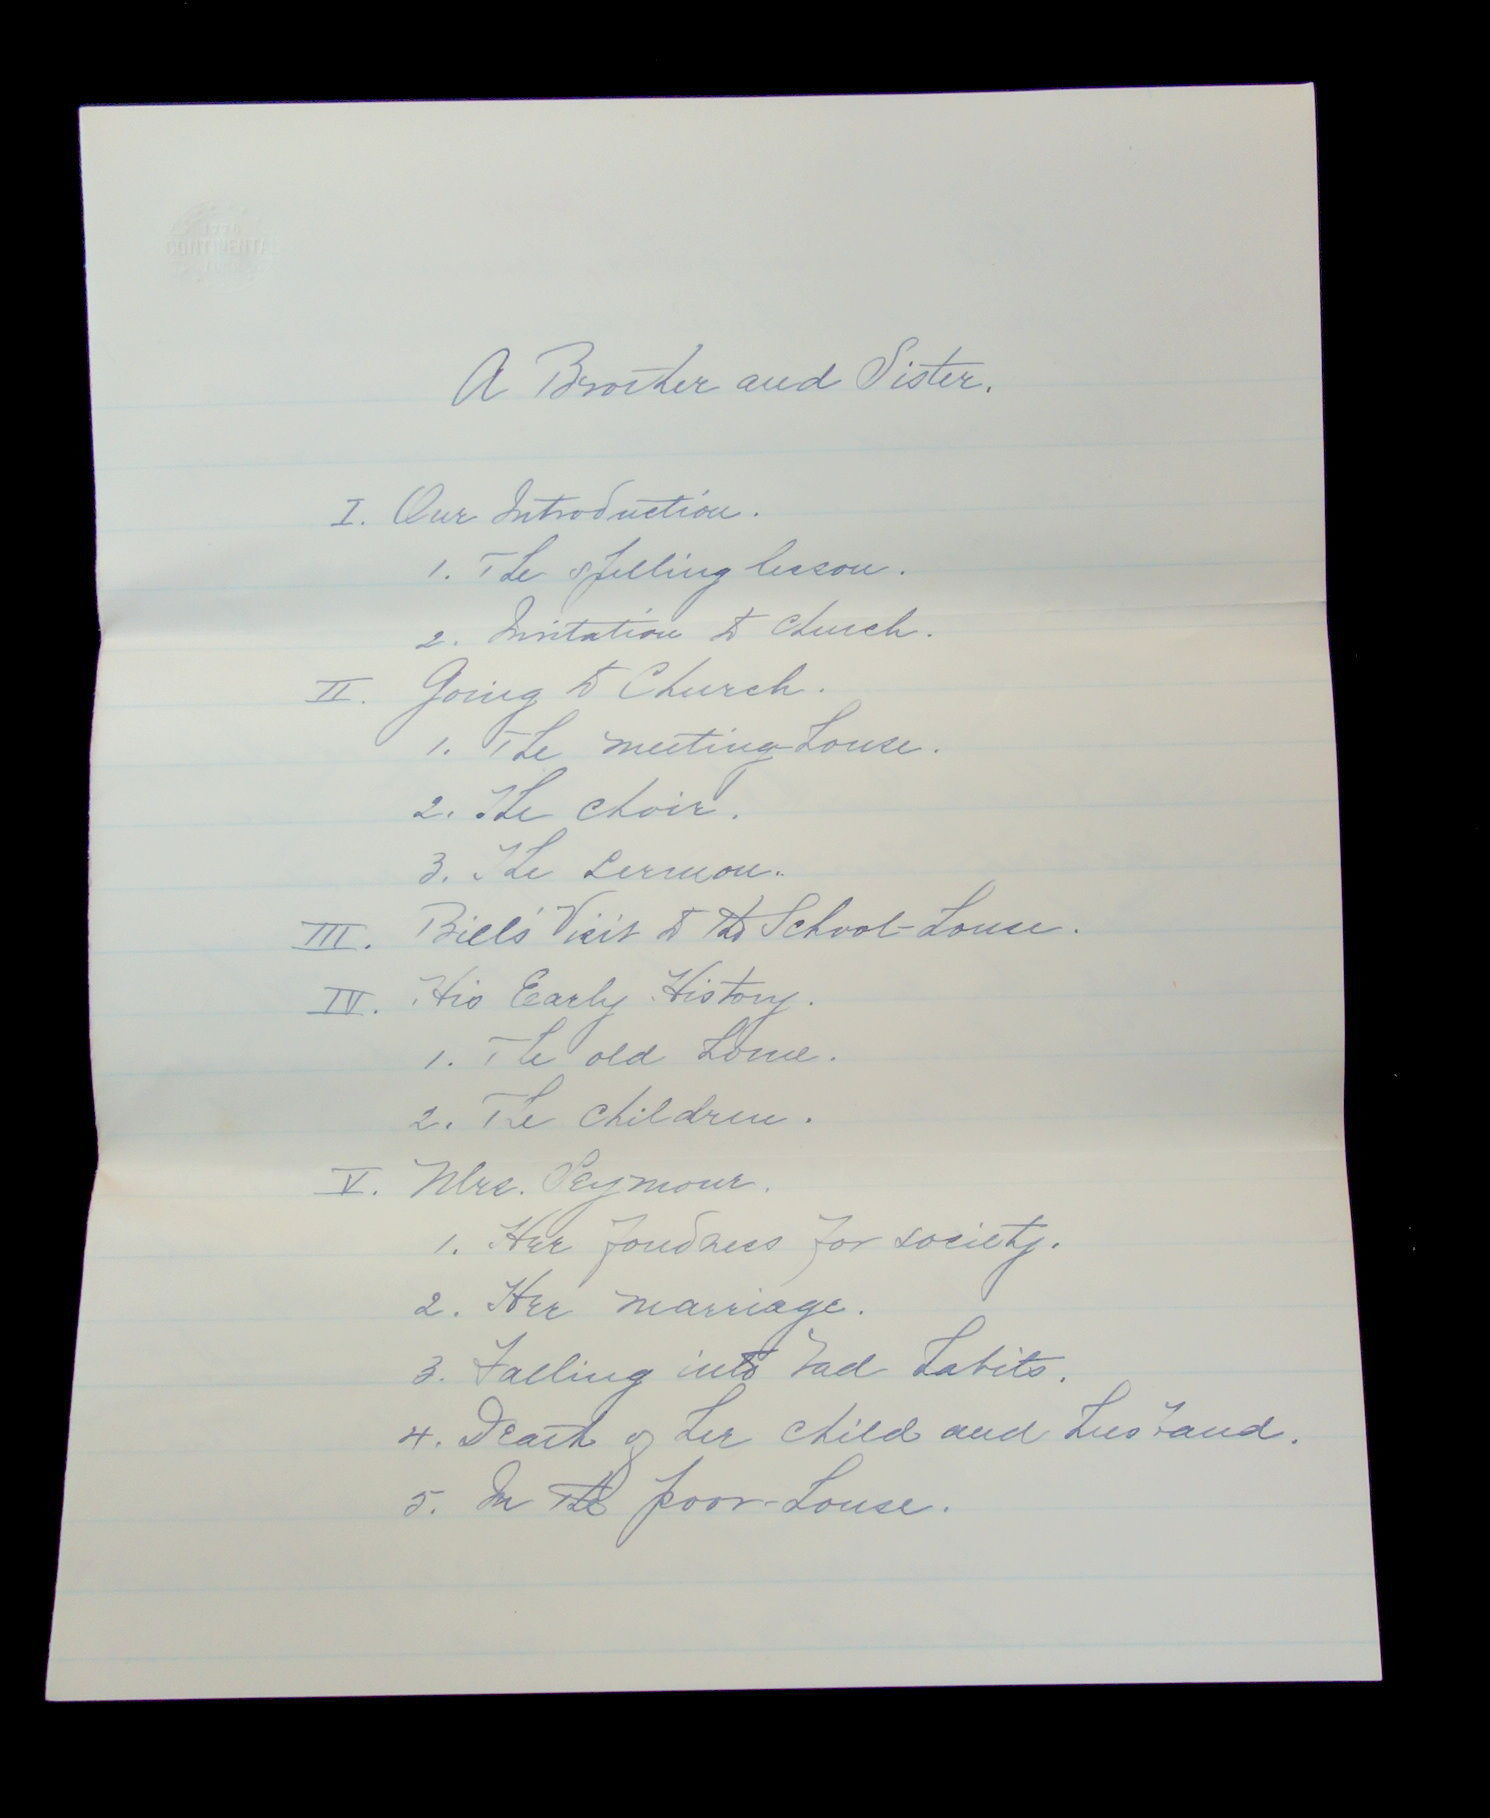 A Brother and Sister.
I. Our Introduction.
1. The spelling lesson.
2. Invitation to church.
II. Going to Church.
1. The meeting-house.
2. The choir.
3. The sermon.
III. Bill's Visit to the School-house.
IV. His Early History.
1. The old home.
2. The children.
V. Mrs. Seymour.
1. Her fondness for society.
2. Her marriage.
3. Falling into bad habits.
4. Death of her child and husband.
5. In the poor-house.